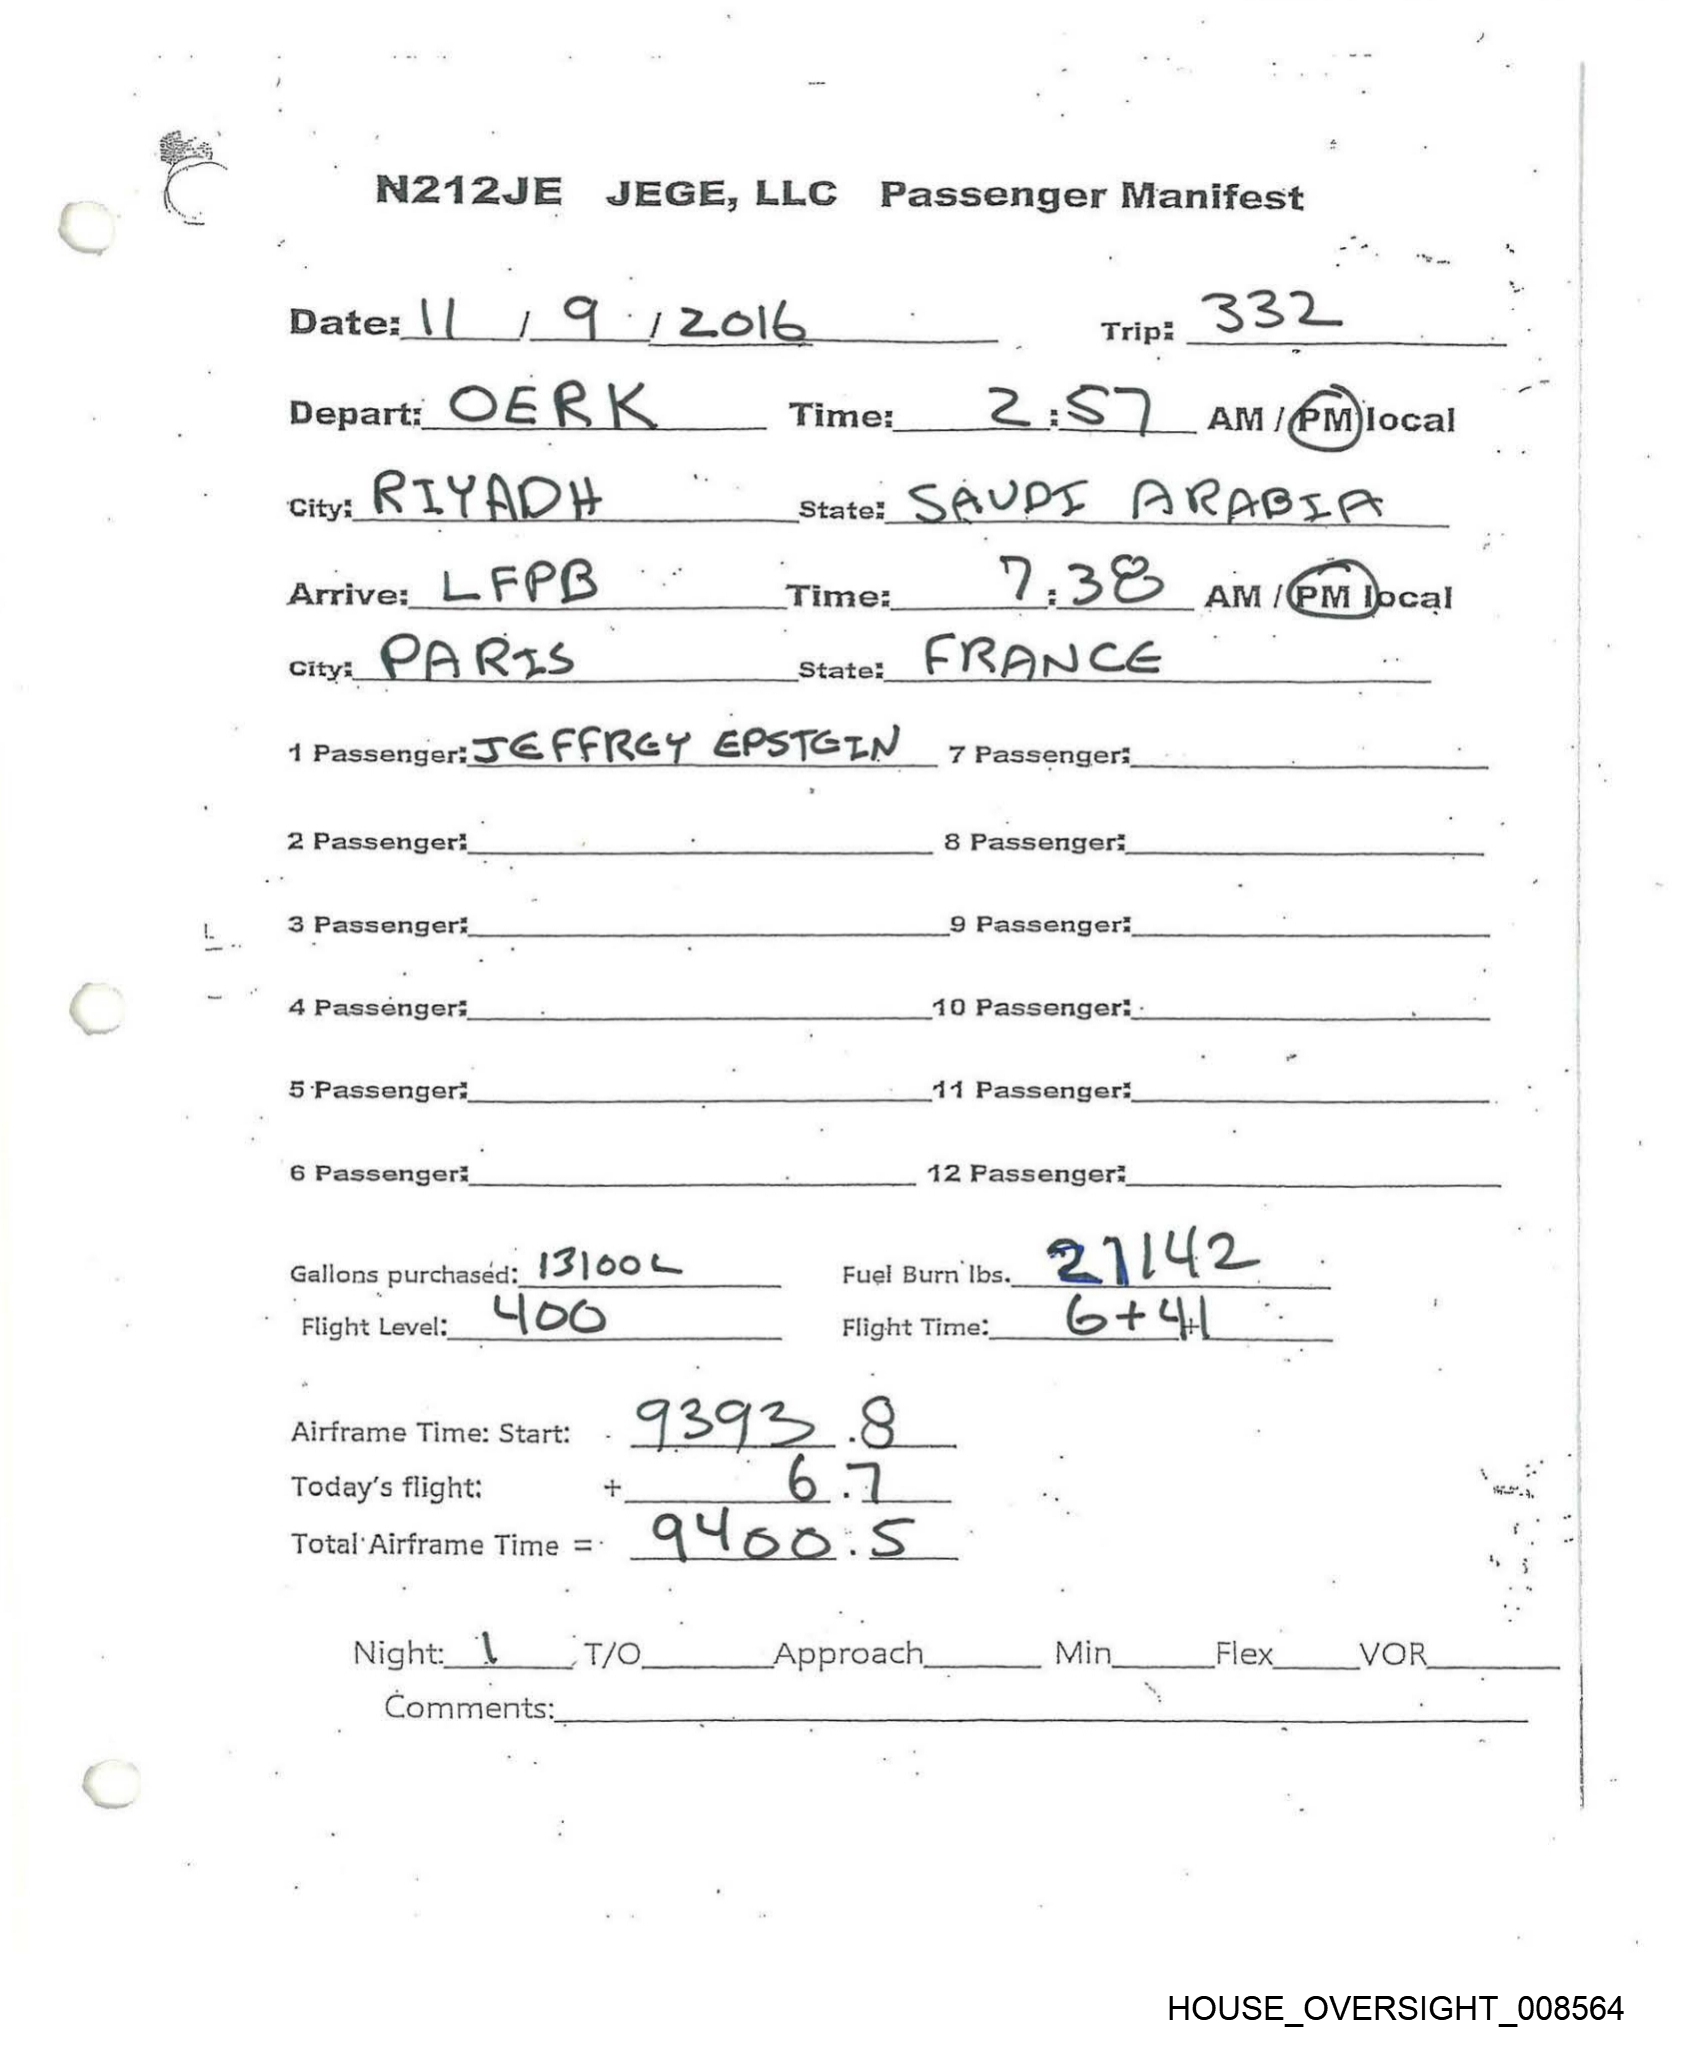 N212JE JEGE, LLC Passenger Manifest
Date: 11 / 9 / 2016 Trip: 332
Depart: OERK Time: 2:57 AM / PM local
City: RIYADH State: SAUDI ARABIA
Arrive: LFPB Time: 7:38 AM / PM local
City: PARIS State: FRANCE
1 Passenger: JEFFREY EPSTEIN 7 Passenger:
2 Passenger: 8 Passenger:
3 Passenger: 9 Passenger:
4 Passenger: 10 Passenger:
5 Passenger: 11 Passenger:
6 Passenger: 12 Passenger:
Gallons purchased: 13100 L Fuel Burn lbs. 21142
Flight Level: 400 Flight Time: 6+41
Airframe Time: Start: 9393.8
Today's flight: + 6.7
Total Airframe Time = 9400.5
Night: 1 T/O Approach Min Flex VOR
Comments:
HOUSE_OVERSIGHT_008564